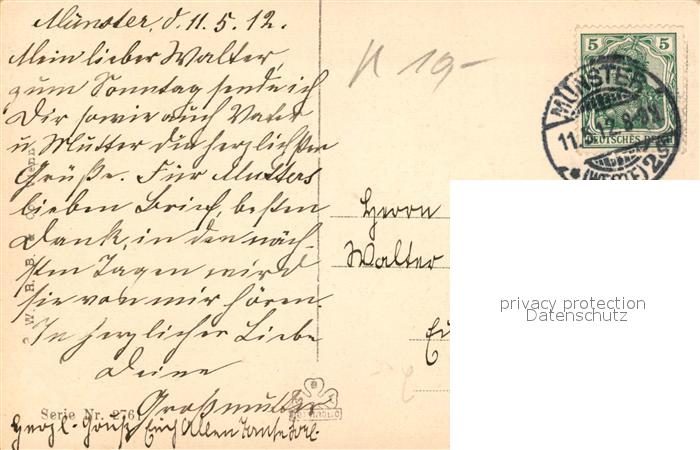 Münster, d. 11.5.12.
Mein lieber Walter,
zum Sonntag sende ich
Dir sowie auch Vater
u. Mutter die herzlichsten
Grüße. Für Mutters
lieben Brief, besten
Dank, in den näch-
sten Tagen wird
sie von mir hören.
In herzlicher Liebe
Deine
Großmutter
Herzl. Gruß Euch Allen
Serie Nr. 276
W. R. B.
19-
5 5
DEUTSCHES REICH
MÜNSTER
11. 12. 8-9N
*(WESTF.)2s
Herrn
Walter
privacy protection
Datenschutz